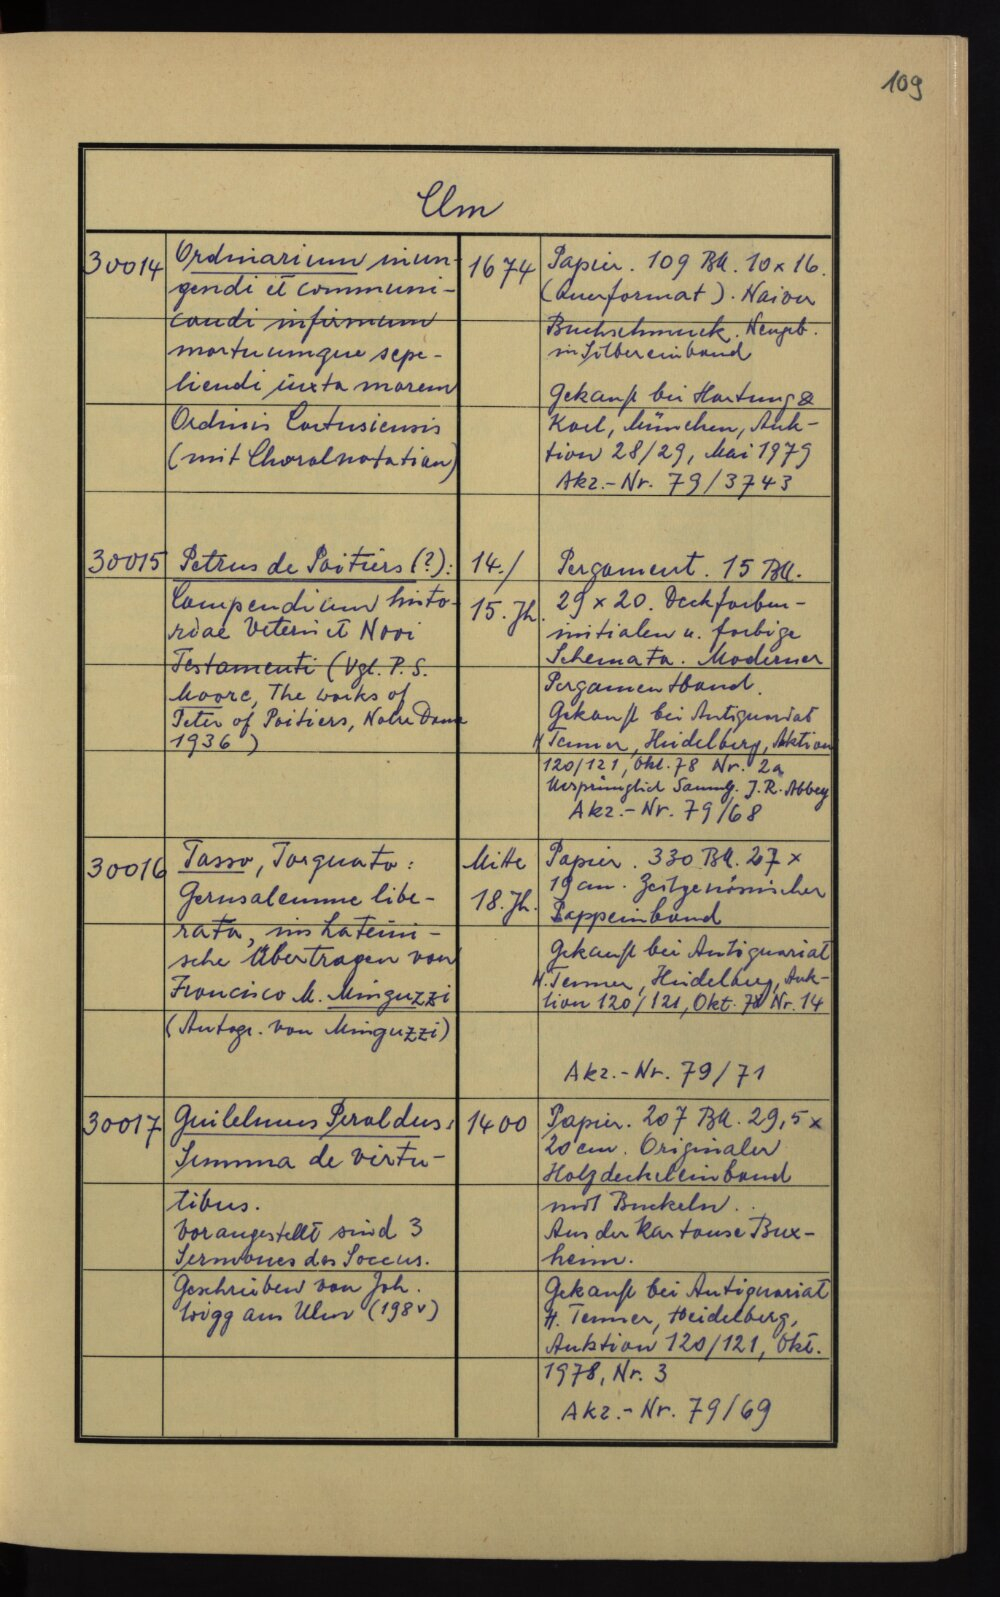 109
Clm
30014
Ordinarium inun-
gendi et communi-
candi infirmum
mortuumque sepe-
liendi iuxta morem
Ordinis Cartusiensis
(mit Choralnotation)
1674
Papier. 109 Bll. 10 x 16.
(Querformat). Naiver
Buchschmuck. Neugeb.
in Silbereinband
Gekauft bei Hartung &
Karl, München, Auk-
tion 28/29, Mai 1979
Akz.-Nr. 79/3743
30015
Petrus de Poitiers (?):
Compendium histo-
riae Veteris et Novi
Testamenti (Vgl. P. S.
Moore, The works of
Peter of Poitiers, Notre Dame
1936)
14./
15. Jh.
Pergament. 15 Bll.
29 x 20. Deckfarben-
initialen u. farbige
Schemata. Moderner
Pergamentband.
Gekauft bei Antiquariat
H. Tenner, Heidelberg, Auktion
120/121, Okt. 78 Nr. 2a
Ursprünglich Sammlg. J. R. Abbey
Akz.-Nr. 79/68
30016
Tasso, Torquato:
Gerusalemme libe-
rata, ins Lateini-
sche Übertragen von
Francisco M. Minguzzi
(Autogr. von Minguzzi)
Mitte
18. Jh.
Papier. 330 Bll. 27 x
19 cm. Zeitgenössischer
Pappeinband
Gekauft bei Antiquariat
H. Tenner, Heidelberg, Auk-
tion 120/121, Okt. 78 Nr. 14
Akz.-Nr. 79/71
30017
Guilelmus Peraldus:
Summa de virtu-
tibus.
Vorangestellt sind 3
Sermones des Soccus.
Geschrieben von Joh.
Wigg aus Ulm (198v)
1400
Papier. 207 Bll. 29,5 x
20 cm. Originaler
Holzdeckeleinband
mit Buckeln.
Aus der Kartause Bux-
heim.
Gekauft bei Antiquariat
H. Tenner, Heidelberg,
Auktion 120/121, Okt.
1978, Nr. 3
Akz.-Nr. 79/69